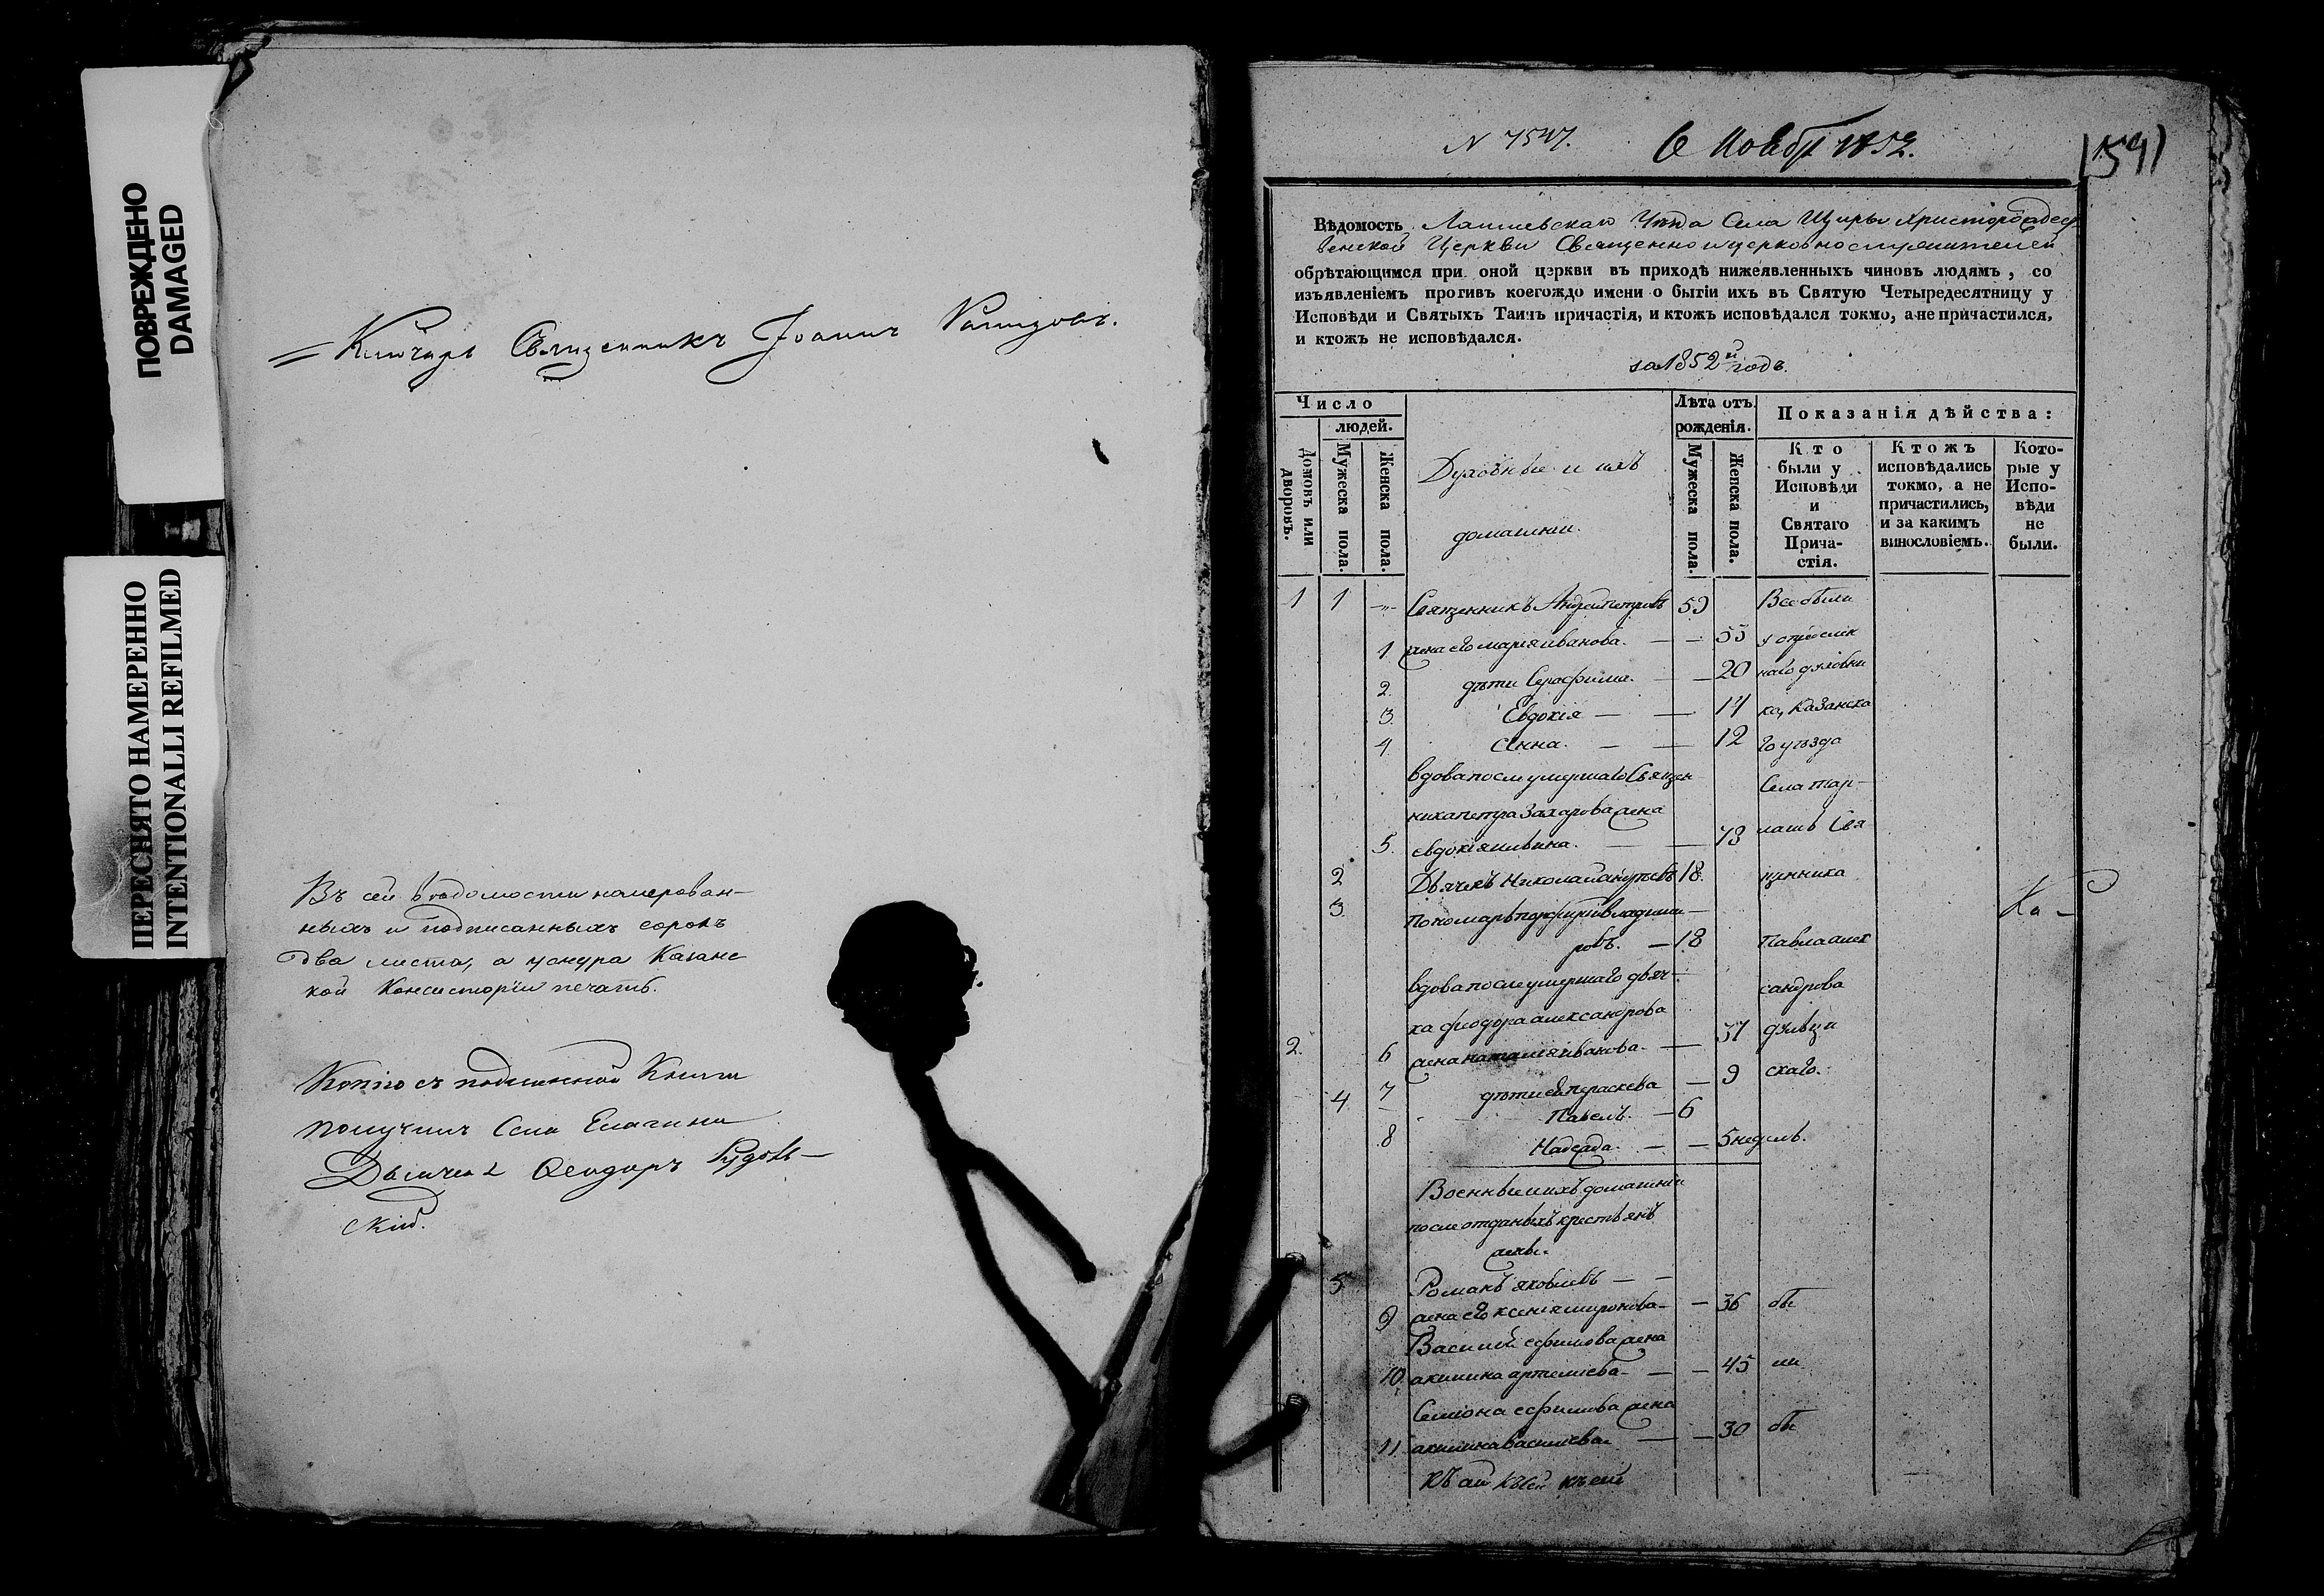 ПОВРЕЖДЕНО
DAMAGED
ПЕРЕСНЯТО НАМЕРЕННО
INTENTIONALLI REFILMED
Ключарь Священникъ Іоаннъ
Въ сей вѣдомости номерован-
ныхъ и подписанныхъ сорокъ
два листа, а у снура Казанс
кой Консисторіи печать.
Копію съ подлинной Книги
получилъ Села Елагина
Дьячекъ Ѳеодоръ Рудов-
скій.
N 7547. 6 Ноябр 1852.
Вѣдомость Лаишевскаго Уѣзда Села Щиры Христорождест
венской Церкви Священно и церковнослужителей
обрѣтающимся при оной церкви въ приходѣ нижеявленныхъ чиновъ людямъ, со
изъявленіемъ противъ коегождо имени о бытіи ихъ въ Святую Четыредесятницу у
Исповѣди и Святыхъ Таинъ причастія, и ктожъ исповѣдался токмо, а не причастился,
и ктожъ не исповѣдался.
за 1852й годъ.
Число
людей.
Домовъ или дворовъ.
Мужеска пола.
Женска пола.
Духовные и ихъ
домашніи.
Лѣта отъ рожденія.
Мужеска пола.
Женска пола.
Показанія дѣйства:
Кто были у Исповѣди и Святаго Прича-стія.
Ктожъ исповѣдались токмо, а не причастились, и за какимъ винословіемъ.
Кото-рые у Испо-вѣди не были.
1 1 Священникъ Андрей Петровъ 59 Все были
1 жена его Марія Иванова. — — 55 у
2. дѣти Серафима. — — 20 наго духовни
3. Евдокія — — 14 ка, Казанска
4 Анна. — — 12 го уѣзда
вдова после умершаго Священ- Села Тар-
ника Петра Захарова жена
5. Евдокія — — 73 лашъ Свя
2 Дьячекъ Николай 18. щенника
3. Пономарь Порфирій Владими- Ка-
ровъ. — 18 Павла Алек
вдова после умершаго дьяч- сандрова
ка Феодора Александрова
2. 6 жена Наталія Иванова. — 37
4 7 дѣти ея Параскева — 9 скаго.
Павелъ. — 6
8 Надежда. — — 5 недель.
Военные и ихъ домашніи
после отданыхъ крестьянъ
жены.
5 Романъ Яковлевъ — —
9 жена его Ксенія Миронова — — 36 бы
Василій Ефимова жена
10. Акилина Артемьева — — 45 ли
Семиона Ефимова жена
11 Акилина Васильева — — 30 бы